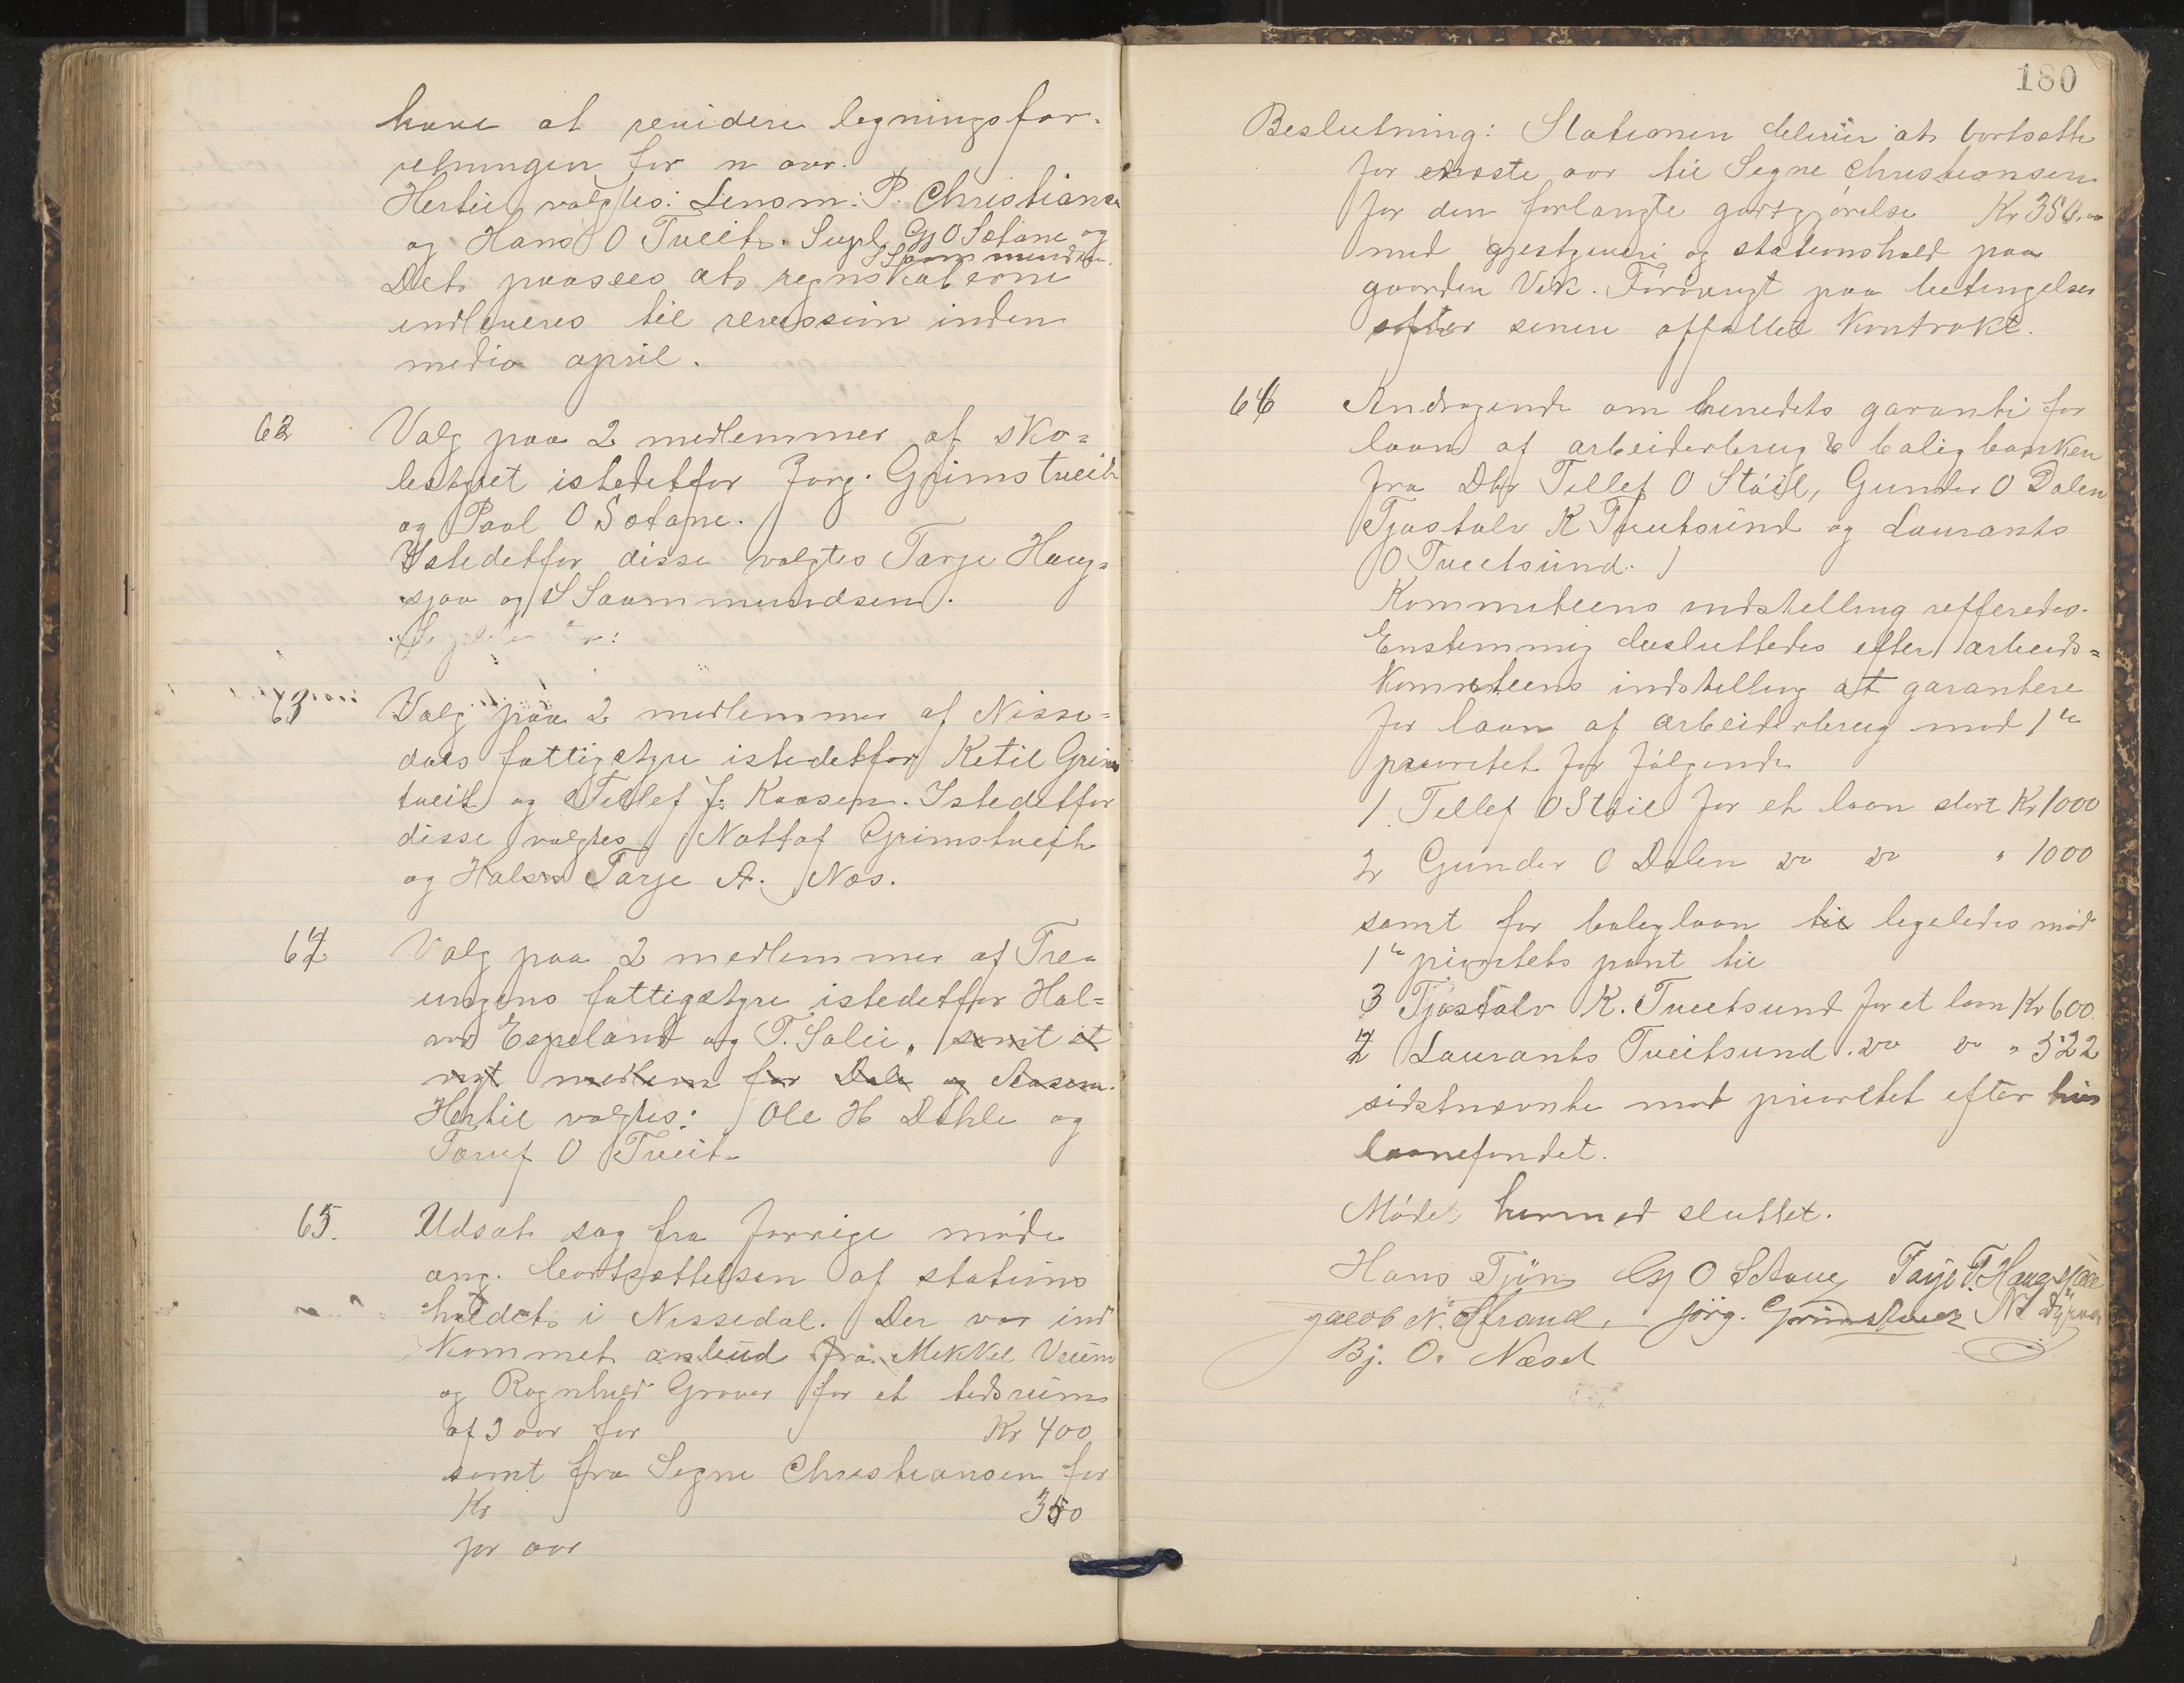 have at revidere legningsfor-
retningen for n aar.
Hertil valgtes: Lensm: P. Christiansen
og Hans O Tveit. Supl. Gj O Sætane og
S Saammundsen.
Det paasees at regnskaberne
indleveres til revission inden
media april.
62 Valg paa 2 medlemmer af sko=
lestyret istedetfor Jørg. Grimstveit
og Paal O Sætane.
Istedetfor disse valgtes Tarje Haug=
sjaa og S Saammundsen.
63 Valg paa 2 medlemmer af Nisse=
dals fattigstyre istedetfor Ketil Grim
tveit og Tellef J. Kaasen. Istedetfor
disse valgtes Nottof Grimstveit
og Tarje A. Næs.
64 Valg paa 2 medlemmer af Tre=
ungens fattigstyre istedetfor Hal=
vor Espeland og T. Salii, samt et
nyt medlem for Dale og Aasen.
Hertil valgtes: Ole H Dahle og
O Tveit.
65. Udsat sag fra forrige møde
ang. bortsættelsen af stations
holdets i Nissedal. Der var ind
kommet anbud fra Mikkel Veum
og Ragnhild Graver for et tidsrum
af 3 aar for Kr 400
samt fra Signe Christiansen for
Kr 350
for aar
180
Beslutning: Stationen bliver at bortsætte
for næste aar til Signe Christiansen
for den forlangte godtgjørelse Kr 350.00
med gjestgiveri og stationshold paa
gaarden Vik. Forøvrigt paa betingelser
efter senere affattet kontrakt.
66 Andragende om herredets garanti for
laan af arbeiderbrug & boligbanken
fra Dhr Tellef O Støil, Gunder O Dalen
Tjøstolv K Tveitsund og Laurants
O Tveitsund.
Kommiteens indstilling refferedes.
Enstemmig besluttedes efter arbeids=
komiteens indstilling at garantere
for laan af arbeiderbrug mod 1ste
prioritet for følgende
1 Tellef O Støil for et laan stort Kr 1000
2 Gunder O Dalen do do " 1000
samt for boliglaan til ligeledes mod
1ste prioritets pant til
3 Tjøstolv K. Tveitsund for et laan Kr 600.
4 Laurants Tveitsund. do do " 522
sidstnævnte mod prioritet efter hus
laanefondet.
Mødet hermed sluttet.
Hans Tjøn Gj O Sætane Tarje T. Haugsjaa
Jacob N. Strand. Jørg. Grimstveit
Bj. O. Næset